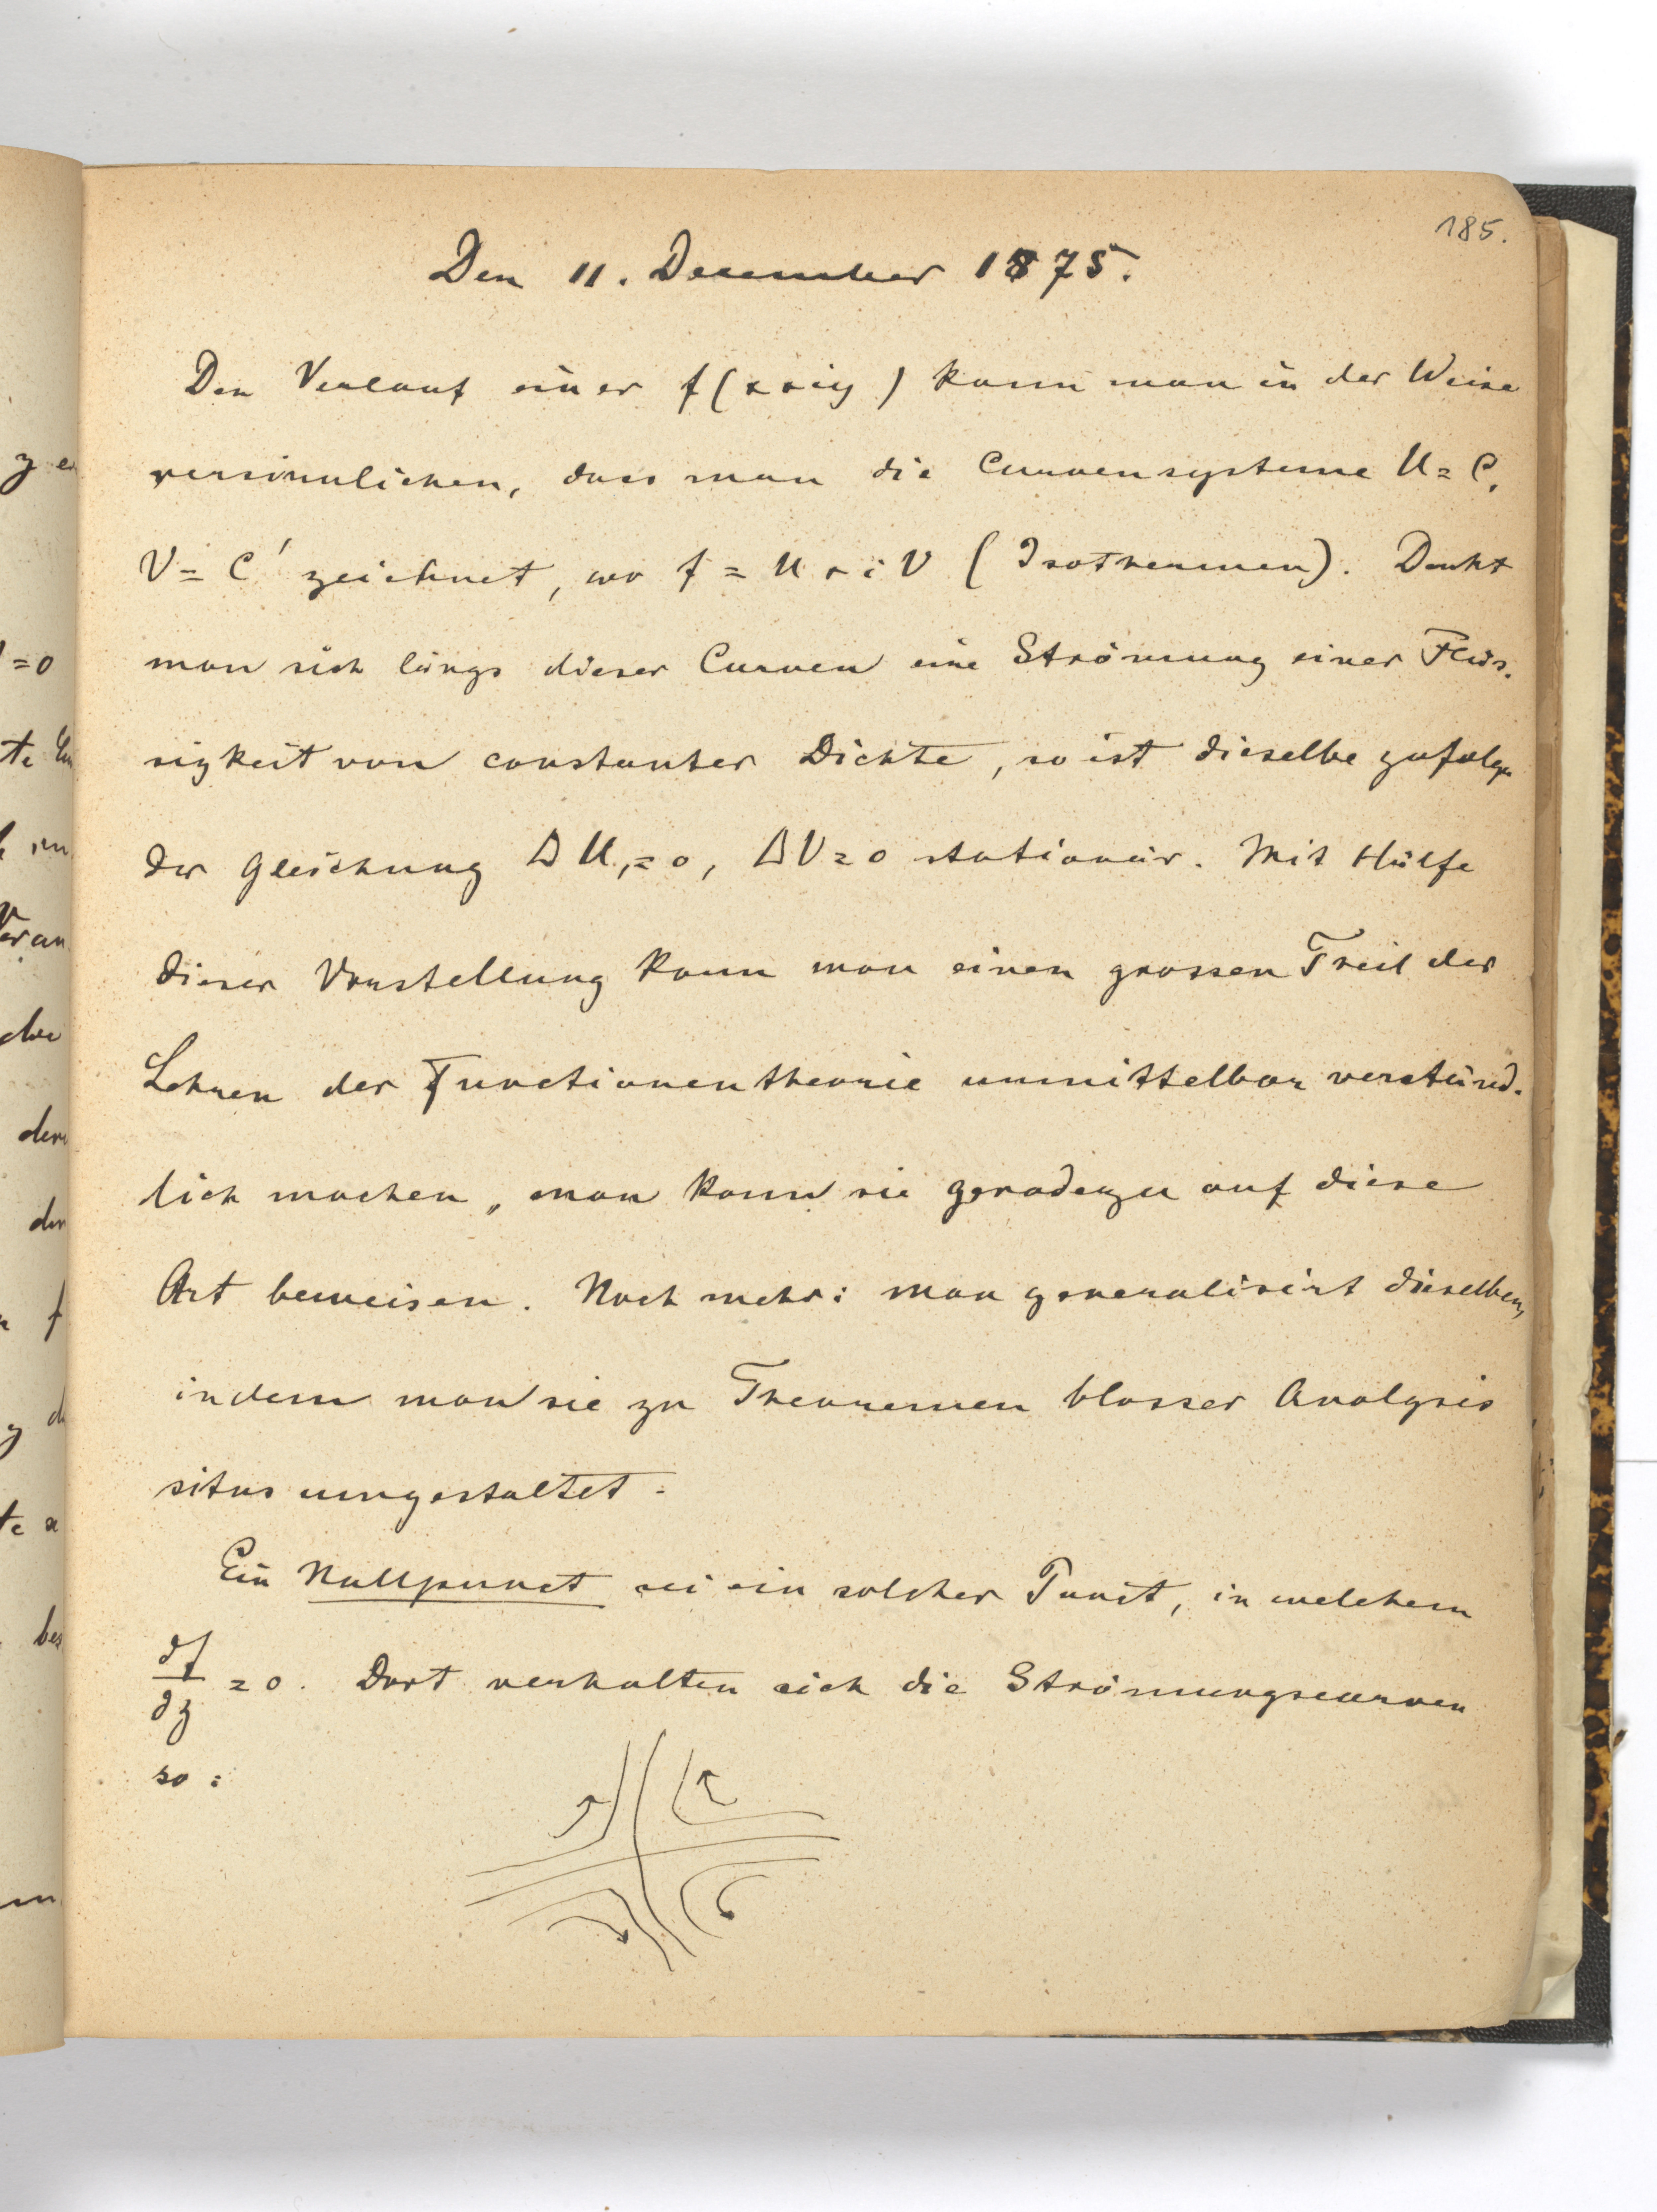 185.
Den 11. December 1875.
Den Verlauf einer f(x+iy) kann man in der Weise
versinnlichen, dass man die Curvensysteme U=C,
V=C' zeichnet, wo f = U+iV (Isothermen). Denkt
man sich längs dieser Curven eine Strömung einer Flüs-
sigkeit von constanter Dichte, so ist dieselbe zufolge
der Gleichung ΔU=0, ΔV=0 stationär. Mit Hülfe
dieser Vorstellung kann man einen grossen Theil der
Lehren der Functionentheorie unmittelbar verständ-
lich machen, man kann sie geradezu auf diese
Art beweisen. Noch mehr: man generalisirt dieselben,
indem man sie zu Theoremen blosser Analysis
situs umgestaltet.
Ein Nullpunct sei ein solcher Punct, in welchem
∂f/∂z = 0. Dort verhalten sich die Strömungscurven
so: